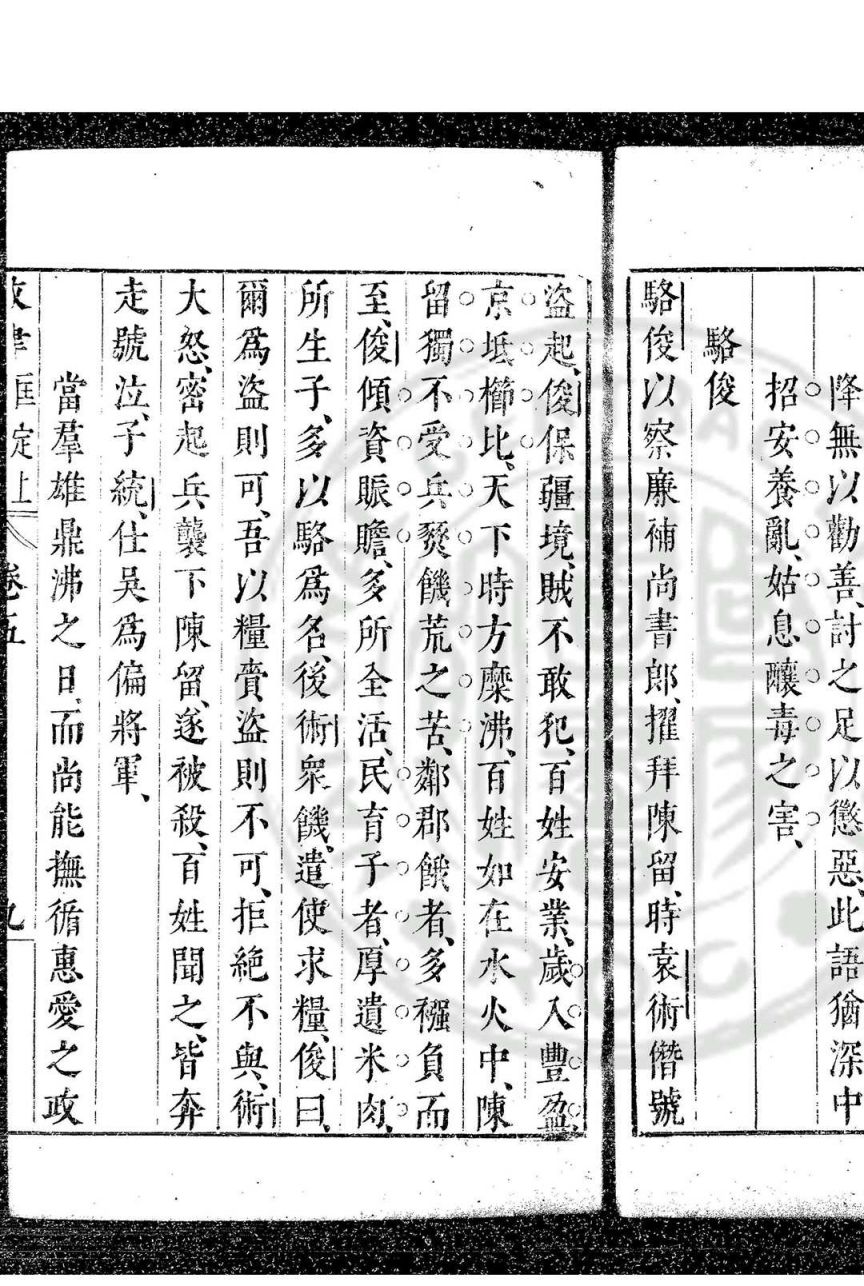 降無以勸善討之足以懲惡、此語猶深中
招安養亂、姑息釀毒之害、
駱俊
駱俊以察廉補尚書郎、擢拜陳留、時袁術僭號
盜起、俊保疆境、賊不敢犯、百姓安業、歲入豐盈、
京坻櫛比、天下時方糜沸、百姓如在水火中、陳
留獨不受兵燹饑荒之苦、鄰郡餓者、多襁負而
至、俊傾資賑贍、多所全活、民育子者、厚遺米肉、
所生子、多以駱為名、後術眾饑、遣使求糧、俊曰、
爾爲盜則可、吾以糧賫盜則不可、拒絕不與、術
大怒、密起兵襲下陳留、遂被殺、百姓聞之、皆奔
走號泣、子統、仕吳爲偏將軍、
當羣雄鼎沸之日、而尚能撫循惠愛之政
卷五
九